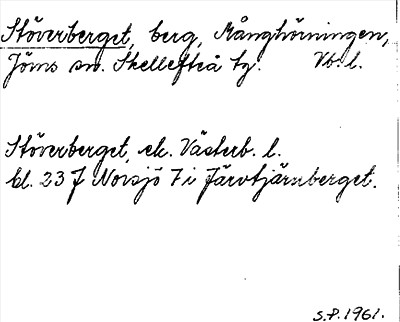 Stöverberget, berg, Månghörningen,
Jörns sn. Skellefteå tg. Vb. l.
Stöverberget, ek. Västerb. l.
bl. 23 J Norsjö 7 i Järvtjärnberget.
S.P. 1961.